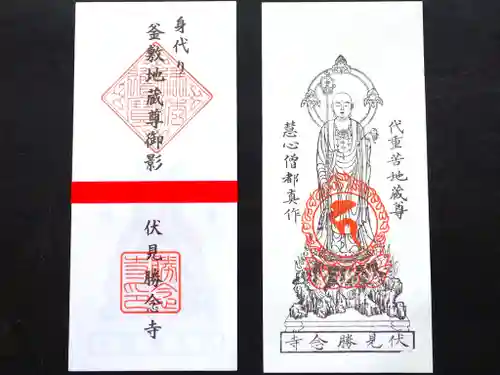 身代り
釜敷地蔵尊御影
伏見勝念寺
代重苦地蔵尊
慧心僧都真作
寺念勝見伏